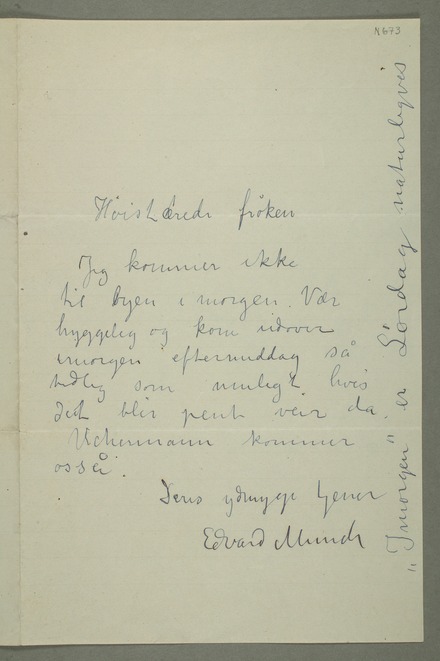 N 673
HöistÆrede fröken
Jeg kommer ikke
til byen i morgen. Vær
hyggelig og kom udover
imorgen eftermiddag så
tidlig som muligt hvis
det blir pent veir da.
Uchermann kommer
osså.
Deres ydmyge tjener
Edvard Munch
"Imorgen" er Lördag naturligvis